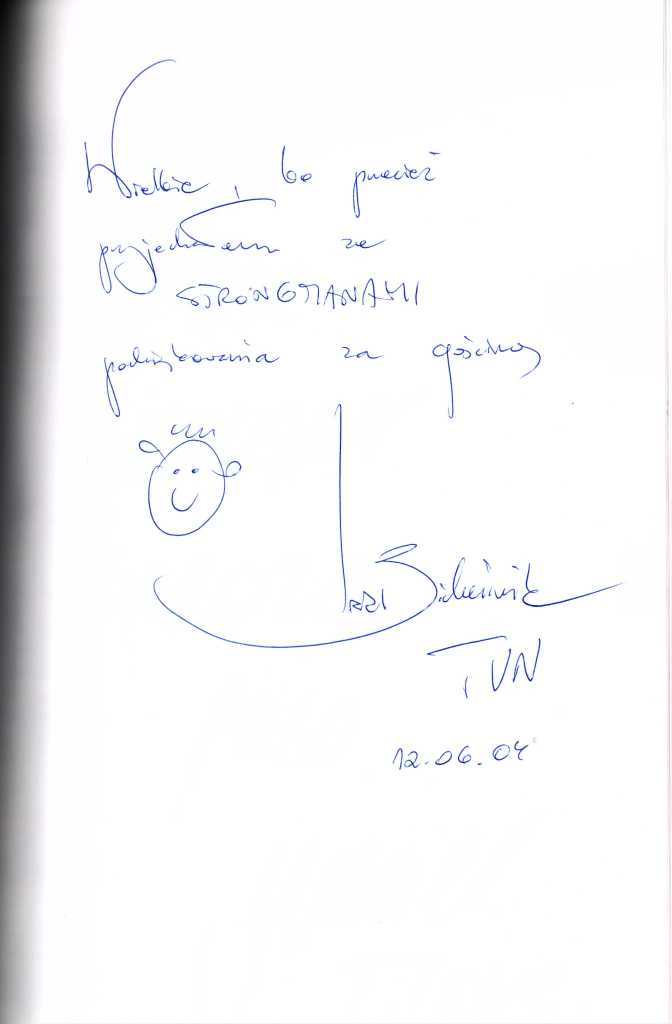 Wielkie, bo przecież
przyjechałem ze
STRONGMANAMI
podziękowania za gościnę
TVN
12.06.04